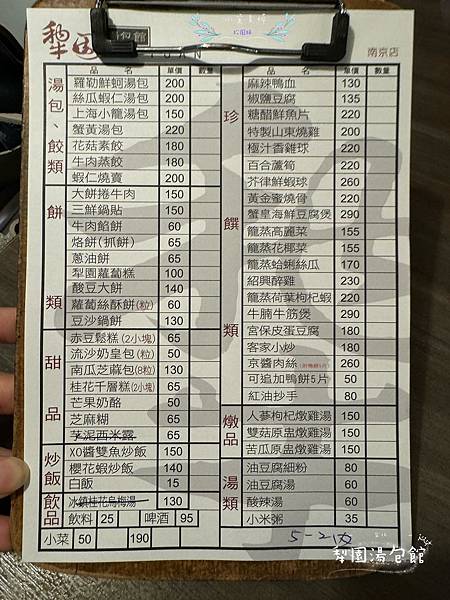 犂园 包館
小菜
南京店
品 名 單價 數量
湯包、餃類
羅勒鮮蚵湯包 200
絲瓜蝦仁湯包 200
上海小籠湯包 150
蟹黃湯包 220
花菇素餃 180
牛肉蒸餃 180
蝦仁燒賣 200
餅類
大餅捲牛肉 150
三鮮鍋貼 150
牛肉餡餅 60
烙餅(抓餅) 65
蔥油餅 65
犁園蘿蔔糕 100
酸豆大餅 140
蘿蔔絲酥餅(粒) 60
豆沙鍋餅 130
甜品
赤豆鬆糕(2小塊) 65
流沙奶皇包(粒) 50
南瓜芝蔴包(8粒) 130
桂花千層糕(2小塊) 65
芒果奶酪 50
芝麻糊 65
芋泥西米露 65
炒飯
XO醬雙魚炒飯 150
櫻花蝦炒飯 140
白飯 15
飲品
冰鎮桂花烏梅湯 130
飲料 25 啤酒 95
小菜 50 190
品 名 單價 數量
珍饌類
麻辣鴨血 130
椒鹽豆腐 135
糖醋鮮魚片 220
特製山東燒雞 200
極汁香雞球 220
百合蘆筍 220
芥律鮮蝦球 260
黃金蜜燒骨 220
蟹皇海鮮豆腐煲 290
龍蒸高麗菜 155
龍蒸花椰菜 155
龍蒸蛤蜊絲瓜 170
紹興醉雞 230
龍蒸荷葉枸杞蝦 220
牛腩牛筋煲 290
宮保皮蛋豆腐 180
客家小炒 180
京醬肉絲 260
可追加鴨餅5片 50
紅油抄手 80
燉品
人蔘枸杞燉雞湯 150
雙菇原盅燉雞湯 150
苦瓜原盅燉雞湯 150
湯類
油豆腐細粉 80
油豆腐湯 60
酸辣湯 60
小米粥 35
5-2 內
犁園湯包館